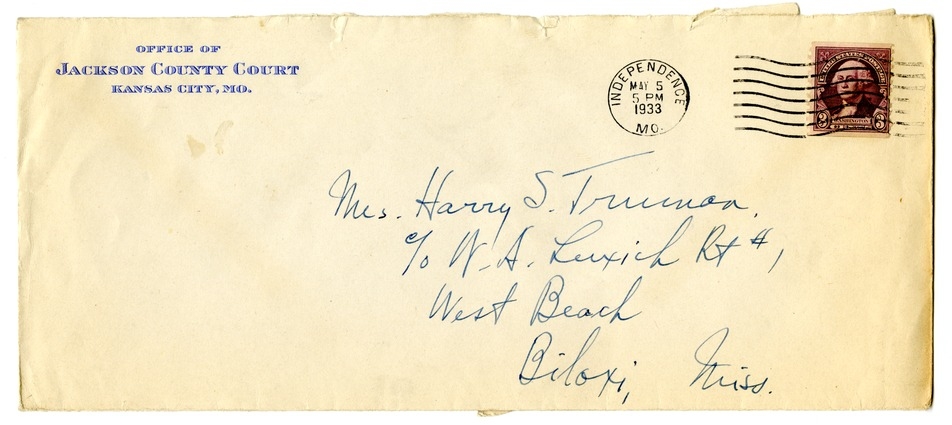 OFFICE OF
JACKSON COUNTY COURT
KANSAS CITY, MO.
INDEPENDENCE
MAY 5
5 PM
1933
MO.
UNITED STATES POSTAGE
3 WASHINGTON 3
Mrs. Harry S. Truman,
c/o W. A. Luxich Rt #1
West Beach
Biloxi, Miss.